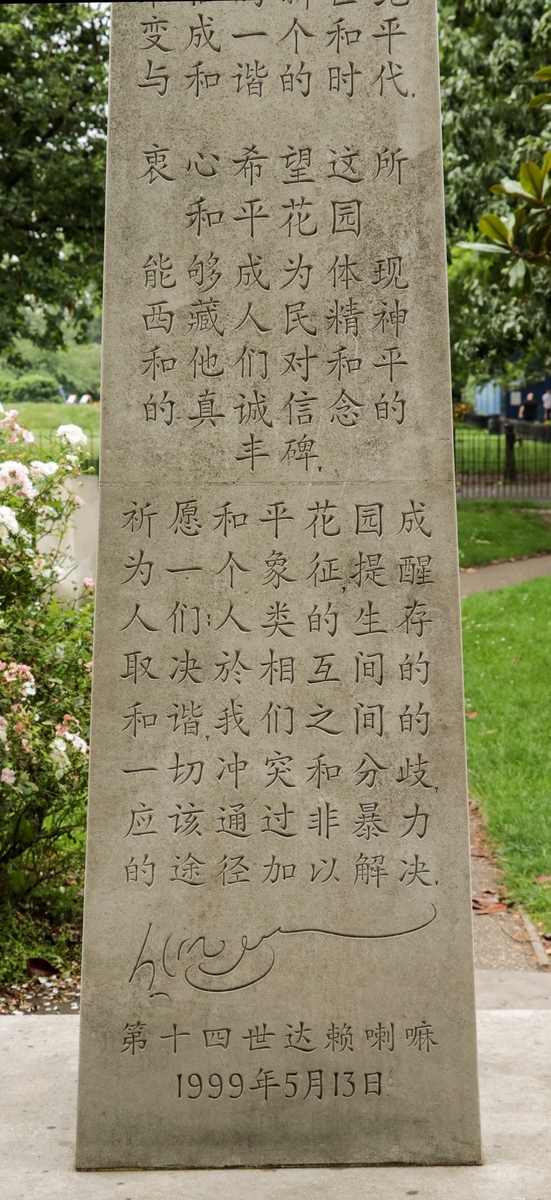 变成一个和平
与和谐的时代.
衷心希望这所
和平花园
能够成为体现
西藏人民精神
和他们对和平
的真诚信念的
丰碑.
祈愿和平花园成
为一个象征,提醒
人们:人类的生存
取决於相互间的
和谐,我们之间的
一切冲突和分歧,
应该通过非暴力
的途径加以解决.
第十四世达赖喇嘛
1999年5月13日